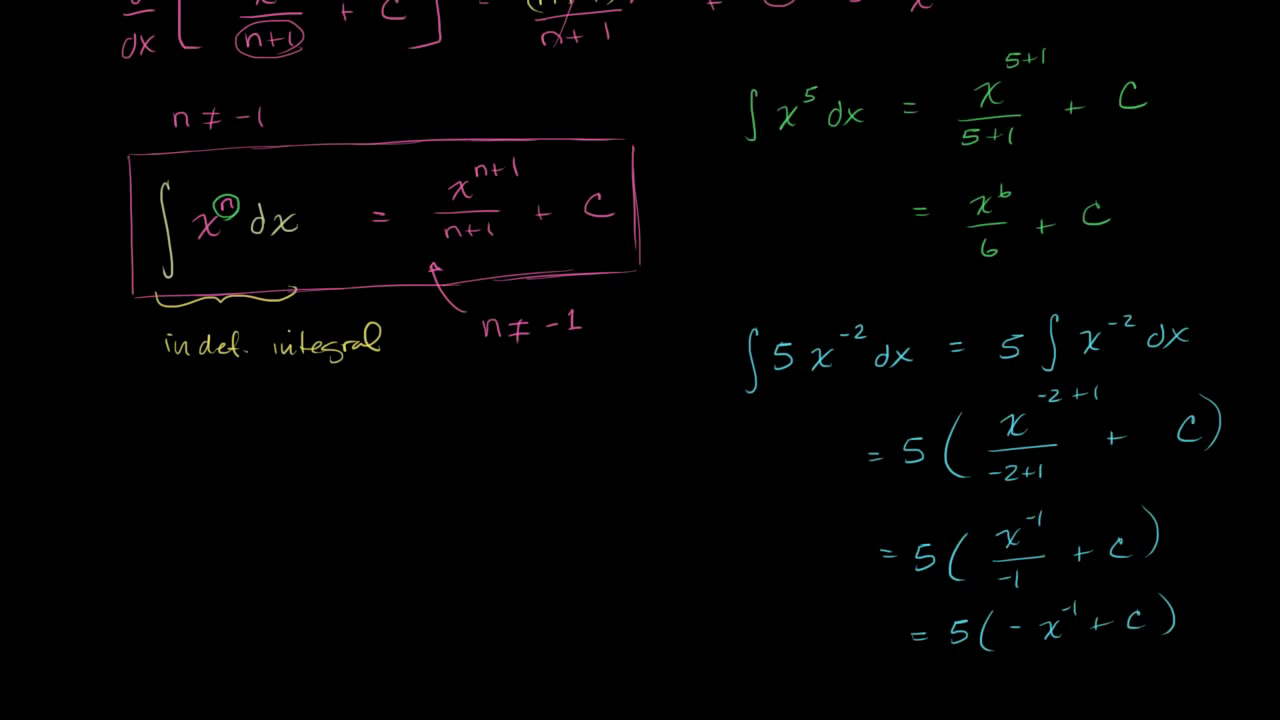 d/dx [ x/(n+1) + C ] = (n+1)/(n+1) +
n ≠ -1
∫ xⁿ dx = xⁿ⁺¹/(n+1) + C
n ≠ -1
indef. integral
∫ x⁵ dx = x⁵⁺¹/(5+1) + C
= x⁶/6 + C
∫ 5 x⁻² dx = 5 ∫ x⁻² dx
= 5 ( x⁻²⁺¹/(-2+1) + C )
= 5 ( x⁻¹/-1 + C )
= 5 ( - x⁻¹ + C )